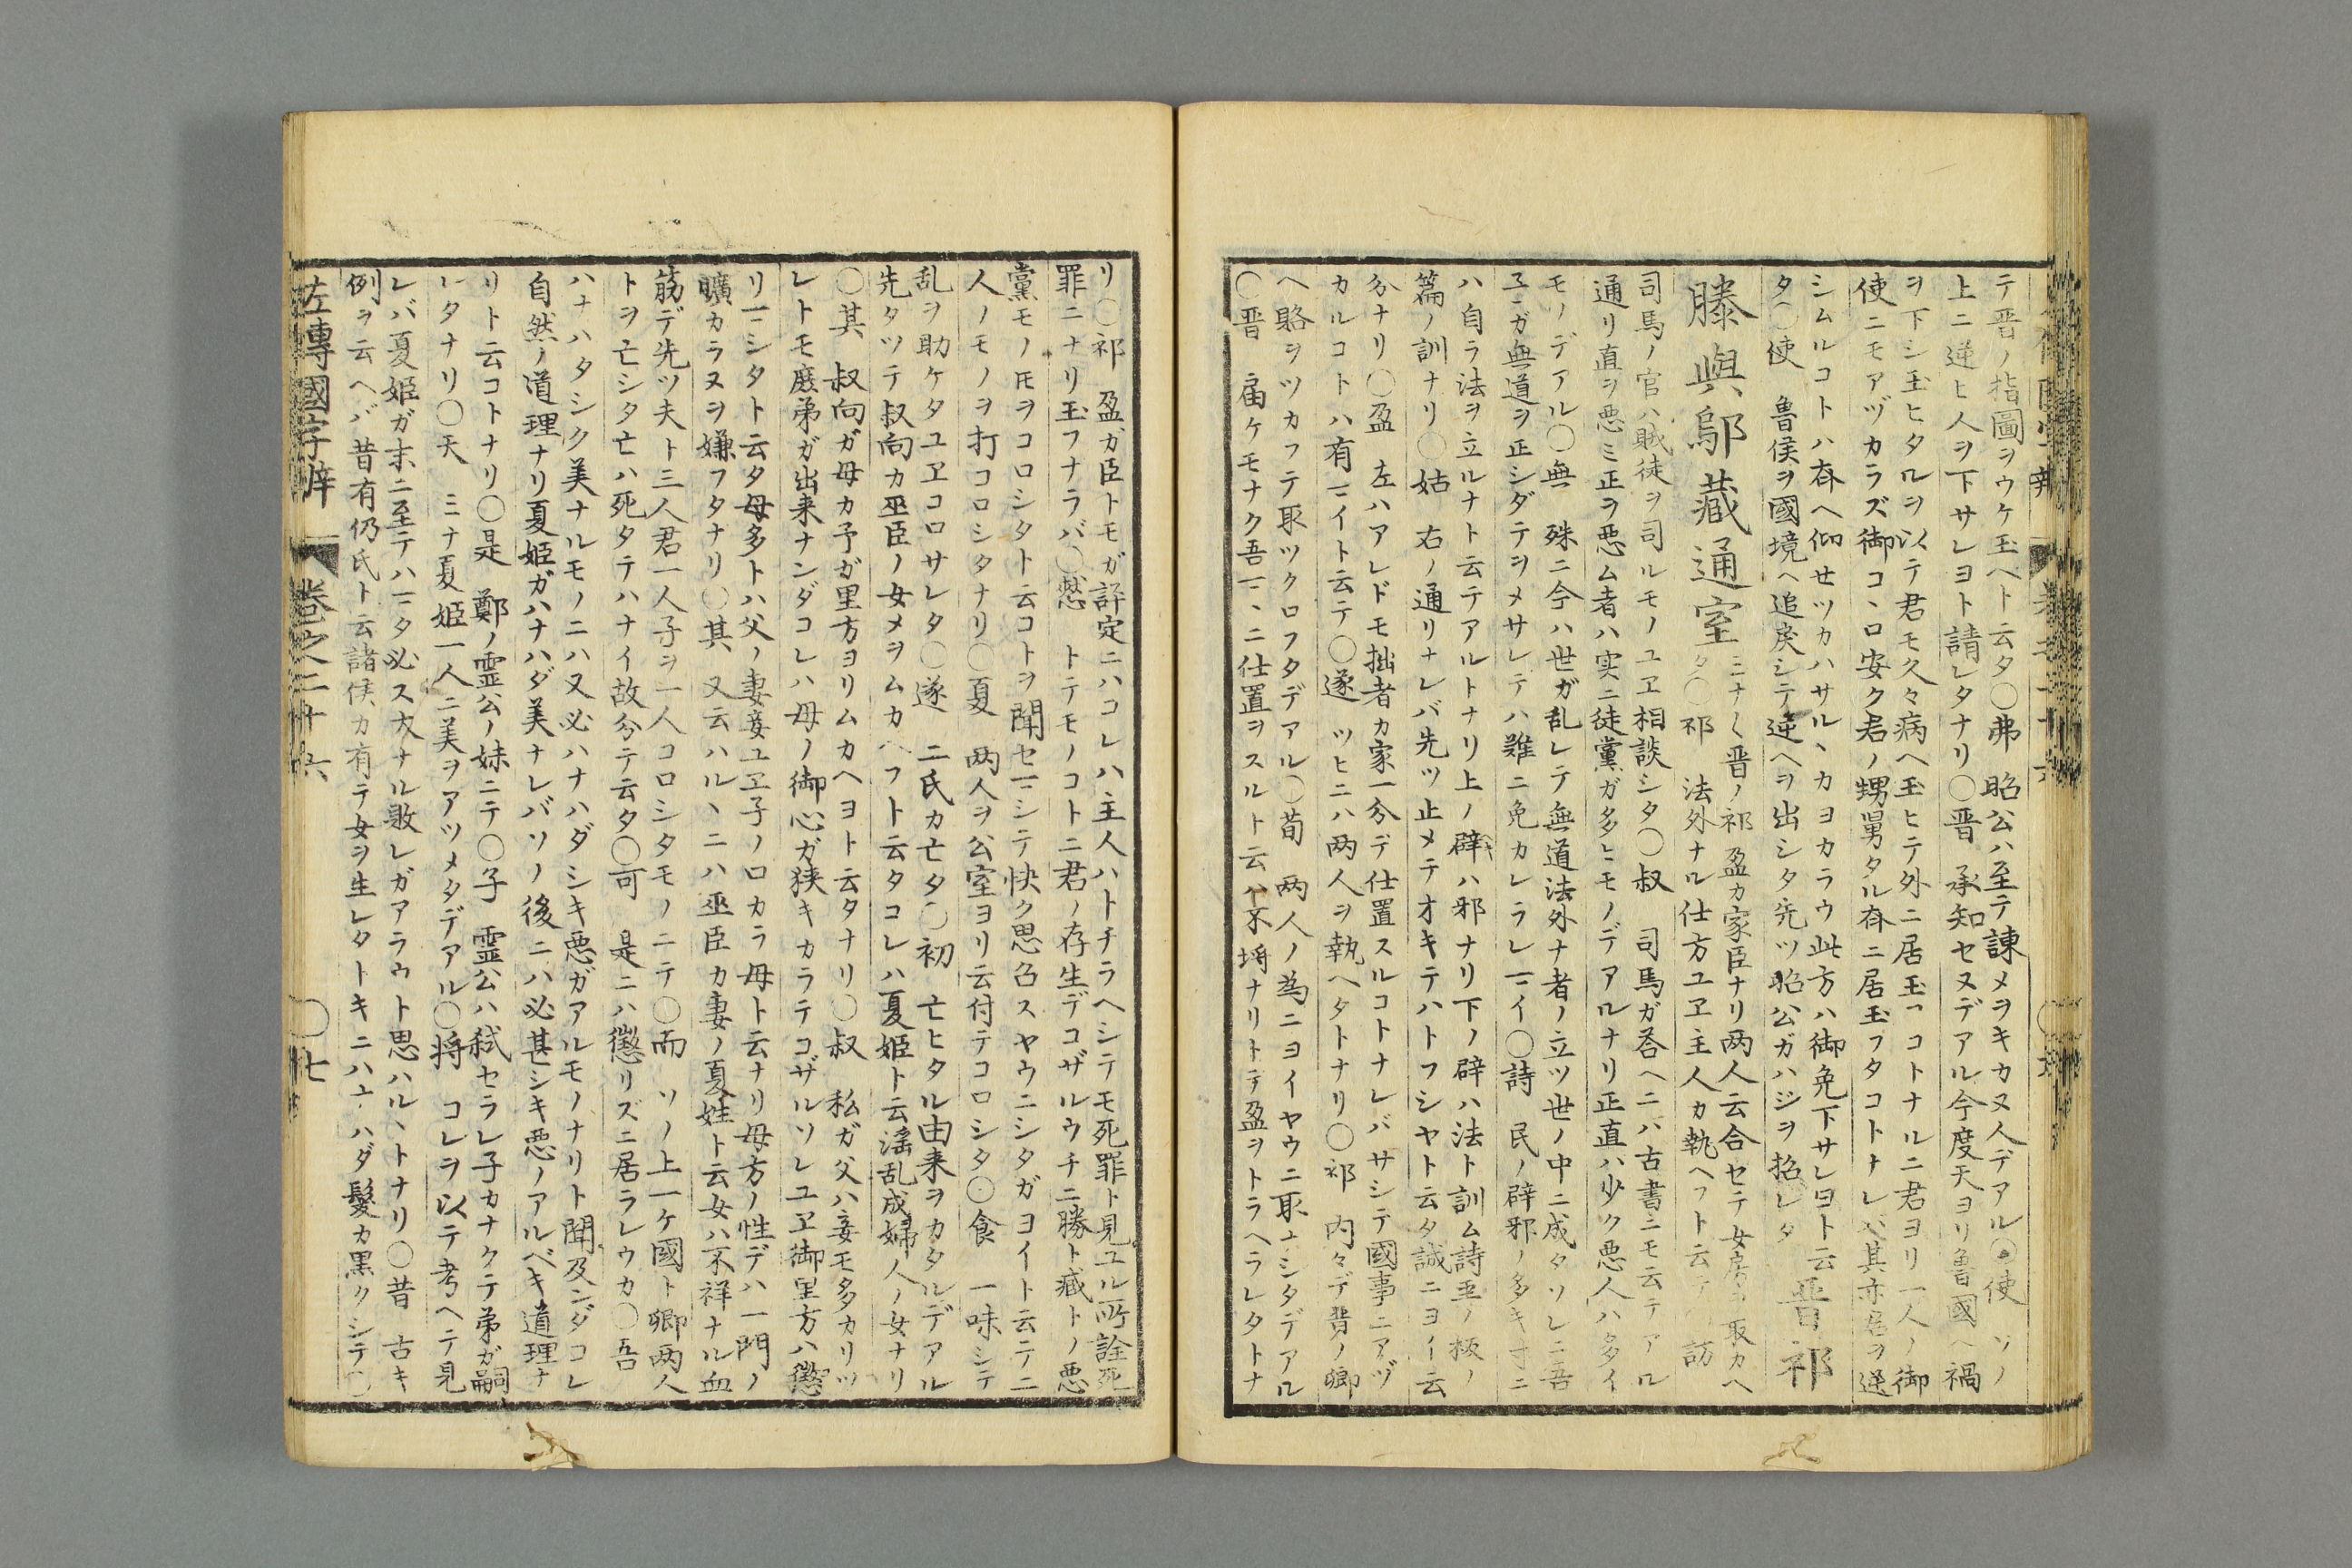 テ晋ノ指圖ヲウケ玉ヘト云タ〇弗 昭公ハ至テ諫メヲキカヌ人デアル〇使 ソノ
上ニ逆ヒ人ヲ下サレヨト請レタナリ〇晋 承知セヌデアル今度天ヨリ魯國ヘ禍
ヲ下シ玉ヒタルヲ以テ君モ久々病ヘ玉ヒテ外ニ居玉フコトナルニ君ヨリ一人ノ御
使ニモアヅカラズ御コヽロ安ク君ノ甥舅タル夲ニ居玉フタコトナレバ其亦君ヲ逆
シムルコトハ夲ヘ仰セツカハサルヽカヨカラウ此方ハ御免下サレヨト云
タ〇使 魯侯ヲ國境ヘ追戻シテ逆ヘヲ出シタ先ツ昭公ガハジヲ招レタ 晋祁
滕與鄔藏通室 ミナ〱晋ノ祁盈カ家臣ナリ两人云合セテ女房ヲ取カヘ
タ〇祁 法外ナル仕方ユヱ主人カ執ヘフト云テ 訪
司馬ノ官ハ賊徒ヲ司ルモノユヱ相談シタ〇叔 司馬ガ荅ヘニハ古書ニモ云テアル
通リ直ヲ悪ミ正ヲ悪ム者ハ実ニ徒黨ガ多ヒモノデアルナリ正直ハ少ク悪人ハ多イ
モノデアル〇無 殊ニ今ハ世ガ乱レテ無道法外ナ者ノ立ツ世ノ中ニ成タソレニ吾
子ガ無道ヲ正シダテヲメサレテハ難ニ免カレラレマイ〇詩 民ノ辟邪ノ多キ寸ニ
ハ自ラ法ヲ立ルナト云テアルトナリ上ノ辟ハ邪ナリ下ノ辟ハ法ト訓ム詩至ノ板ノ
篇ノ訓ナリ〇姑 右ノ通リナレバ先ツ止メテオキテハトフシヤト云タ誠ニヨイ云
分ナリ〇盈 左ハアレドモ拙者カ家一分デ仕置スルコトナレバサシテ國事ニアヅ
カルコトハ有マイト云テ〇遂 ツヒニハ两人ヲ執ヘタトナリ〇祁 内々デ晋ノ卿
ヘ賂ヲツカフテ取ツクロフタデアル〇荀 两人ノ為ニヨイヤウニ取ナシタデアル
〇晋 届ケモナク吾マヽニ仕置ヲスルト云ヿ不埒ナリトテ盈ヲトラヘラレタトナ
リ〇祁 盈ガ臣トモガ評定ニハコレハ主人ハトチラヘシテモ死罪ト見ユル所詮死
罪ニナリ玉フナラバ〇憖 トテモノコトニ君ノ存生デコザルウチニ勝ト臧トノ悪
黨モノ𪜈ヲコロシタト云コトヲ聞セマシテ快ク思召スヤウニシタガヨイト云テ二
人ノモノヲ打コロシタナリ〇夏 两人ヲ公室ヨリ云付テコロシタ〇食 一味シテ
乱ヲ助ケタユヱコロサレタ〇遂 二氏カ亡タ〇初 亡ヒタル由来ヲカタルデアル
先タツテ叔向カ巫臣ノ女メヲムカヘフト云タコレハ夏姫ト云滛乱成婦人ノ女ナリ
〇其 叔向ガ母カ予ガ里方ヨリムカヘヨト云タナリ〇叔 私ガ父ハ妾モ多カリツ
レトモ庶弟ガ出来ナンダコレハ母ノ御心ガ狭キカラテコザルソレユヱ御里方ハ懲
リマシタト云タ母多トハ父ノ妻妾ユヱ子ノ口カラ母ト云ナリ母方ノ性デハ一門ノ
曠カラヌヲ嫌フタナリ〇其 又云ハルヽニハ巫臣カ妻ノ夏姓ト云女ハ不祥ナル血
筋デ先ツ夫ト三人君一人子ヲ一人コロシタモノニテ〇而 ソノ上一ケ國ト卿两人
トヲ亡シタ亡ハ死タテハナイ故分テ云タ〇可 是ニハ懲リズニ居ラレウカ〇吾
ハナハタシク美ナルモノニハ又必ハナハダシキ悪ガアルモノナリト聞及ンダコレ
自然ノ道理ナリ夏姫ガハナハダ美ナレバソノ後ニハ必甚シキ悪ノアルベキ道理ナ
リト云コトナリ〇是 鄭ノ霊公ノ妹ニテ〇子 霊公ハ弑セラレ子カナクテ弟ガ嗣
レタナリ〇天 ミナ夏姫一人ニ美ヲアツメタデアル〇将 コレヲ以テ考ヘテ見
レバ夏姫ガ末ニ至テハマタ必ス大ナル敗レガアラウト思ハルヽトナリ〇昔 古キ
例ヲ云ヘバ昔有仍氏ト云諸侯カ有テ女ヲ生レタトキニハナハダ髪カ黒クシテ〇
左傳國字辨 卷之二十六 〇七